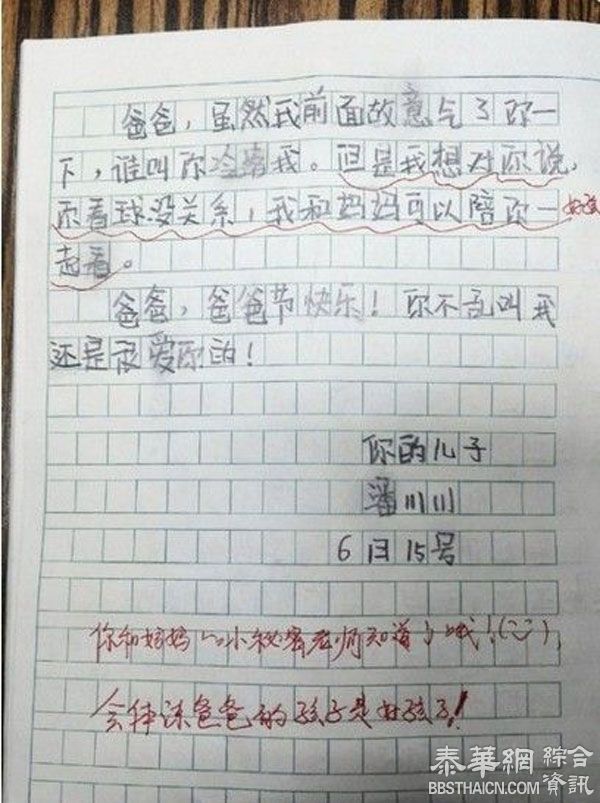 爸爸，虽然我前面故意气了你一
下，谁叫你冷落我。但是我想对你说，
你看球没关系，我和妈妈可以陪你一
好孩
起看。
爸爸，爸爸节快乐！你不乱叫我
还是很爱你的！
你的儿子
潘川川
6月15号
你和妈妈的小秘密老师知道了哦！(:)
会体谅爸爸的孩子是好孩子！
泰華網 綜合資訊
BBSTHAICN.COM